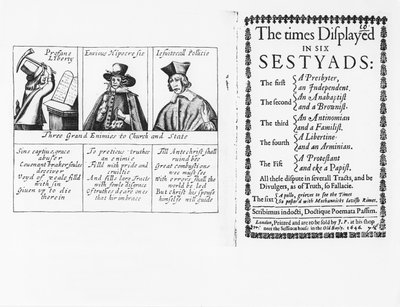 Profane
Liberty
Envious Hipocresie
Iesuiticall Pollicie
Three Grand Enimies to Church and State
Sins captive, grace
abuser
Covenant breaker, soules
deceiver
Voyd of
fild
with sin
Given up to die
therein
To pretious truthes
an enimie
Filld with pride and
crueltie
And fills
with some disgrace
that
her embrace
Till Antechrist shall
ruind bee
Great combustions
wee must see
With errors shall the
world be led
But christ his spouse
himselfe will guide
The times Displayed
IN SIX
SESTYADS:
The first
A Presbyter,
an Independent.
The second
An Anabaptist
and a Brownist.
The third
An Antinomian
and a Familist.
The fourth
A Libertine
and an Arminian.
The Fift
A Protestant
and eke a Papist.
All these dispute in severall Tracts, and be
Divulgers, as of Truth, so Fallacie.
The sixt
Apollo, grieves to see the Times
So pester'd with Mechannicks lavish Rimes.
Scribimus indocti, Doctique Poemata Passim.
London, Printed and are to be sold by J. P. at his shop
neere the Sessions house in the Old Bayly. 1646.